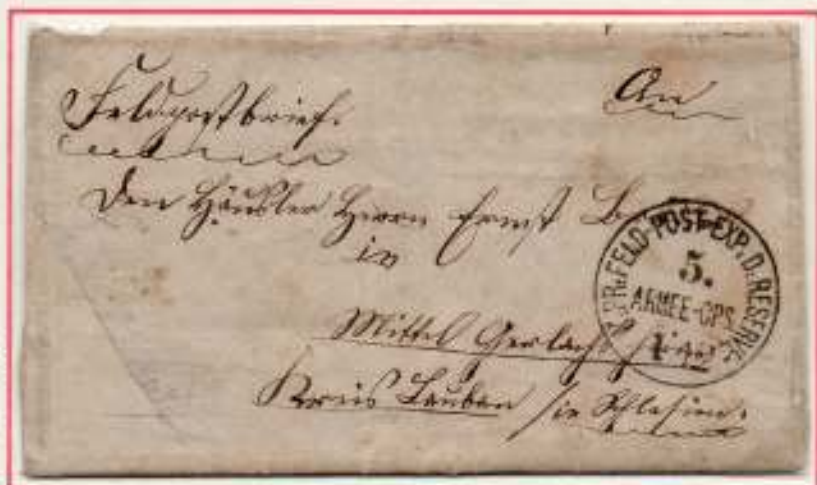 Feldpostbrief.
An
den Häusler Herrn Ernst
in
Mittel Gerlachsheim
Kreis Lauban in Schlesien.
K. PR. FELD-POST-EXP. D. RESERVE
5.
ARMEE-CPS.